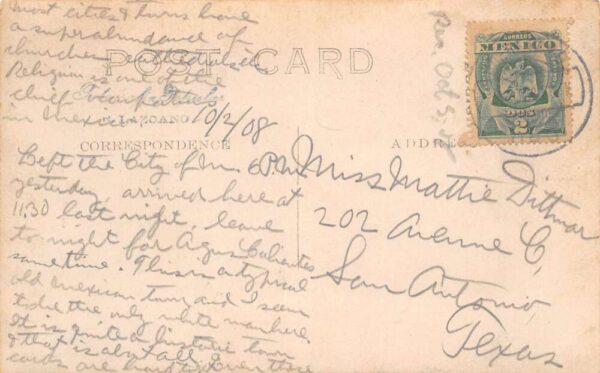 most cities & towns have
a superabundance of
churches, cathedrals &c
Religion is one of the
chief
in Mexico
POST CARD
LAPCANO 10/2/08
CORRESPONDENCE
ADDRESS
Left the City of M. 6 P.M.
yesterday, arrived here at
11:30 last night, leave
to night for Agua Calientes
sometime. This is a typical
old Mexican town and I seem
to be the only white man here.
It is quite a historic town
& that is about all.
cards are hard
these
Miss Mattie Dittmar
202 Avenue C,
San Antonio,
Texas
Oct 5,
CORREOS
MEXICO
DOS
2